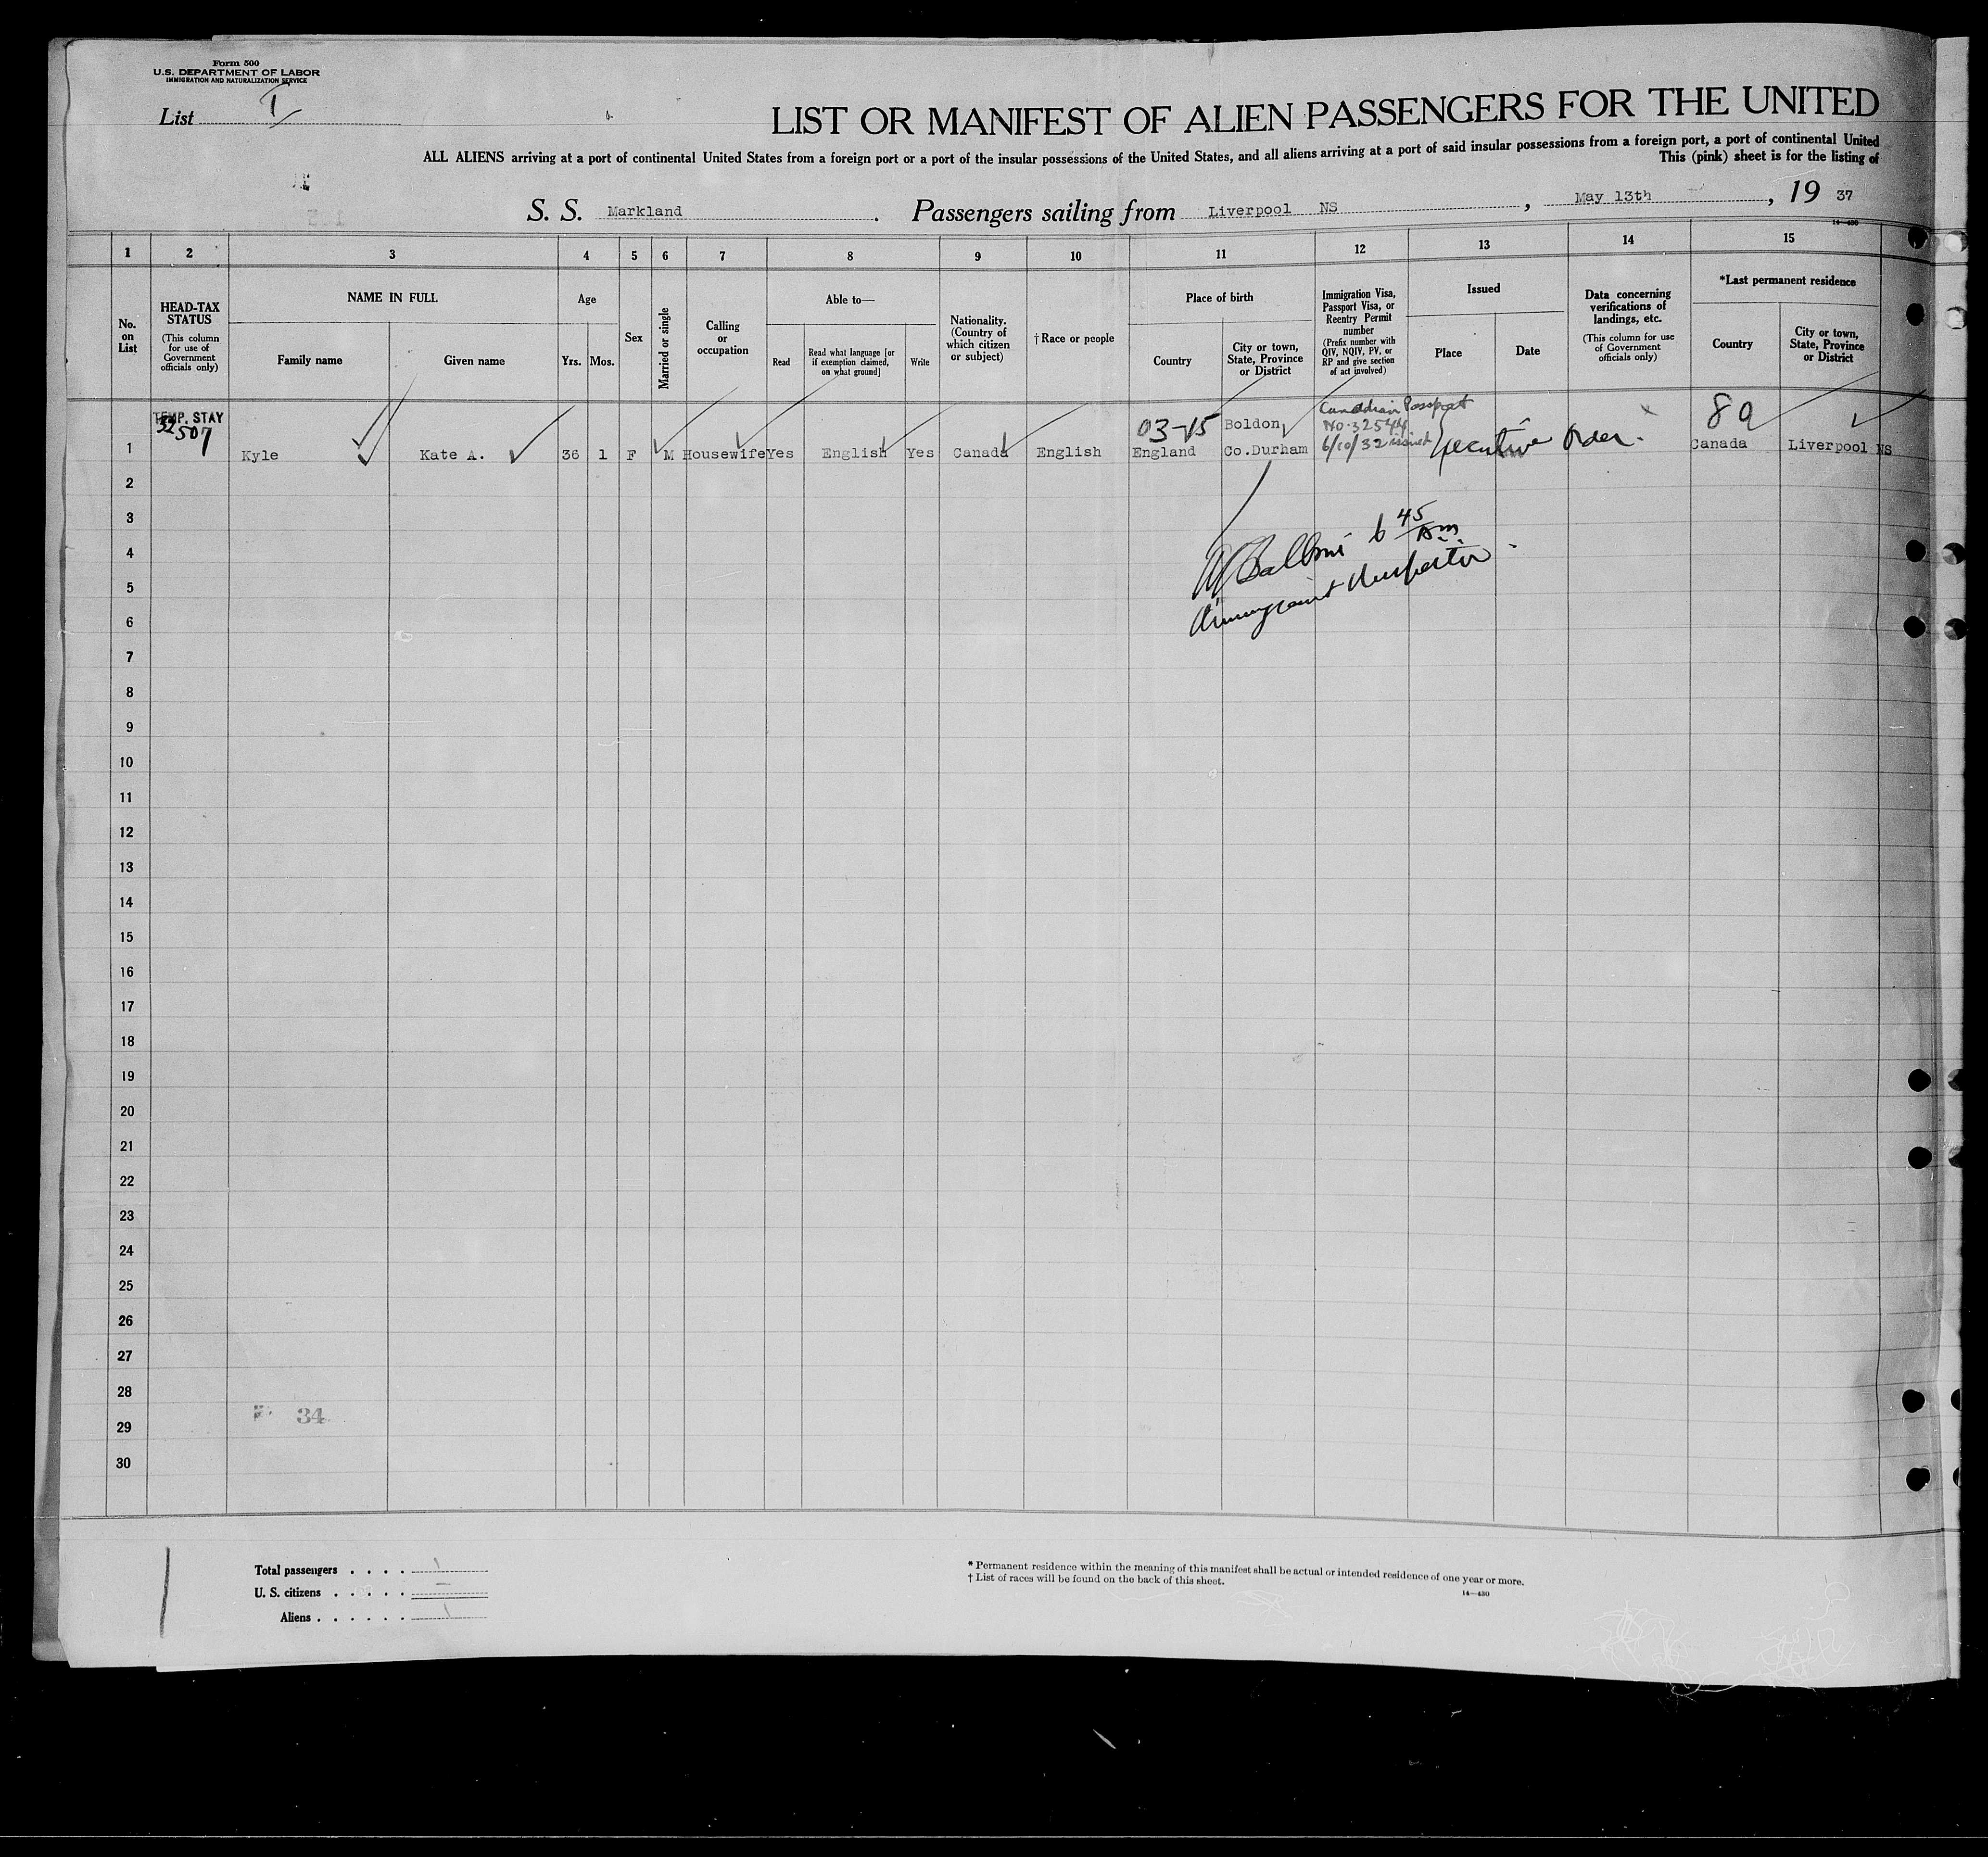 Form 500
U.S. DEPARTMENT OF LABOR
IMMIGRATION AND NATURALIZATION SERVICE
List 1
LIST OR MANIFEST OF ALIEN PASSENGERS FOR THE UNITED
ALL ALIENS arriving at a port of continental United States from a foreign port or a port of the insular possessions of the United States, and all aliens arriving at a port of said insular possessions from a foreign port, a port of continental United
This (pink) sheet is for the listing of
S. S. Markland. Passengers sailing from Liverpool NS, May 13th, 19 37
14—430
1 2 3 4 5 6 7 8 9 10 11 12 13 14 15
No. on List
HEAD-TAX STATUS
(This column for use of Government officials only)
NAME IN FULL
Family name
Given name
Age
Yrs.
Mos.
Sex
Married or single
Calling or occupation
Able to—
Read
Read what language [or if exemption claimed, on what ground]
Write
Nationality. (Country of which citizen or subject)
† Race or people
Place of birth
Country
City or town, State, Province or District
Immigration Visa, Passport Visa, or Reentry Permit number
(Prefix number with QIV, NQIV, PV, or RP and give section of act involved)
Issued
Place
Date
Data concerning verifications of landings, etc.
(This column for use of Government officials only)
*Last permanent residence
Country
City or town, State, Province or District
TEMP. STAY
32507
03-15
Boldon
Canadian Passport
No. 32544
6/10/32 issued
Executive Order.
89
1 Kyle Kate A. 36 1 F M Housewife Yes English Yes Canada English England Co.Durham Canada Liverpool NS
2
3
6 45 AM
4
5
Immigrant Inspector
6
7
8
9
10
11
12
13
14
15
16
17
18
19
20
21
22
23
24
25
26
27
28
34
29
30
Total passengers . . . . 1
U. S. citizens . . . . . —
Aliens . . . . . . 1
* Permanent residence within the meaning of this manifest shall be actual or intended residence of one year or more.
† List of races will be found on the back of this sheet.
14—430